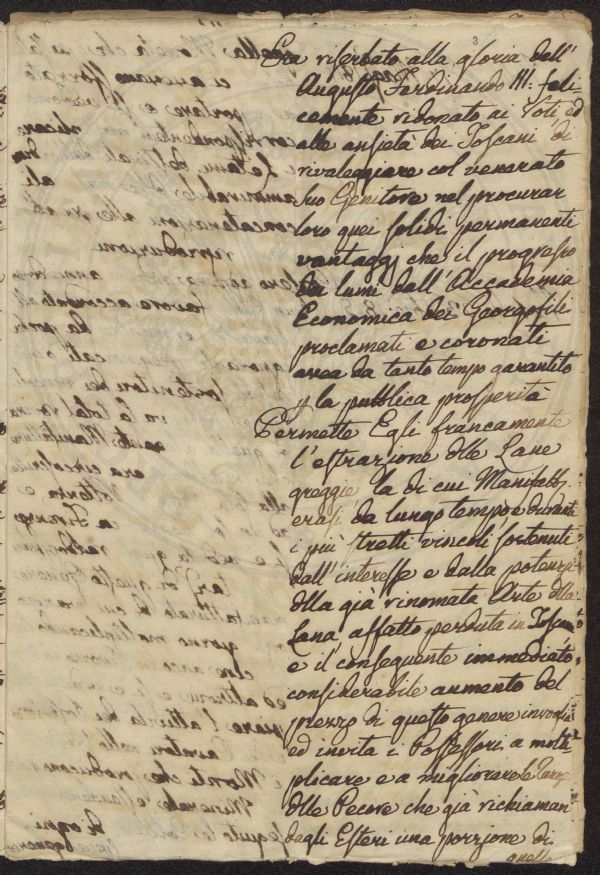 3
Era riserbato alla gloria dell'
Augusto Ferdinando III. feli-
cemente ridonato ai Voti ed
alle ansietà dei Toscani di
rivaleggiare col venerato
suo Genitore nel procurar
loro quei solidi permanenti
vantaggj che il progresso
dei lumi dall'Accademia
Economica dei Georgofili
proclamati e coronati
avea da tanto tempo garantito
p la pubblica prosperità
Permette Egli francamente
l'estrazione dlle Lane
greggie la di cui Manifatt.
erasi da lungo tempo e durante
i più stretti vincoli sostenuti
dall'interesse e dalla potenza
dlla già rinomata Arte dlla
Lana, affatto perduta in Toscana
e il conseguente immediato
considerabile aumento del
prezzo di questo genere invoglia
ed invita i Possessori a molti
plicare e a migliorare le Razze
dlle Pecore che già richiaman
degli Esteri una porzione di
quello